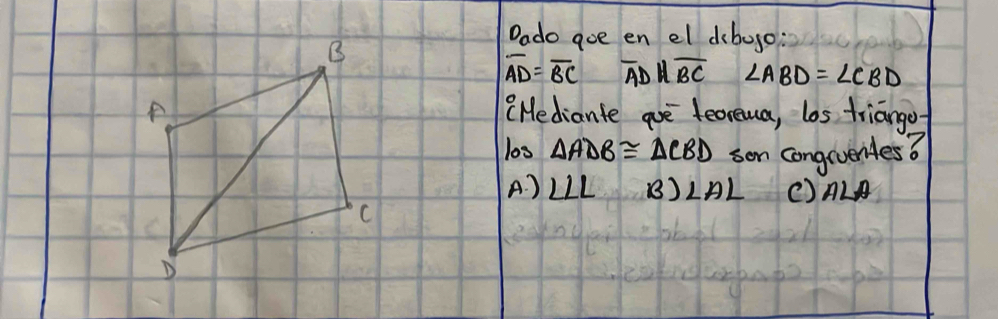 B
A
C
D
Dado que en el dibujo:
AD = BC AD || BC ∠ABD = ∠CBD
¿Mediante qué teorema, los triángu-
los ΔADB ≅ ΔCBD son congruentes?
A.) LLL B) LAL C) ALA